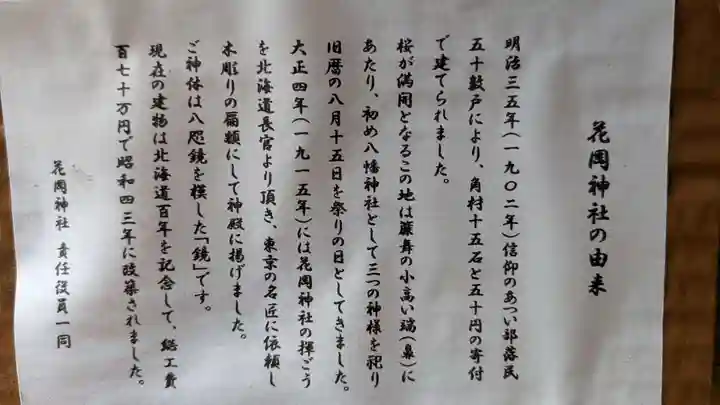 花岡神社の由来
明治三五年(一九〇二年)信仰のあつい部落民
五十数戸により、角材十五石と五十円の寄付
で建てられました。
桜が満開となるこの地は簾舞の小高い端(鼻)に
あたり、初め八幡神社として三つの神様を祀り
旧暦の八月十五日を祭りの日としてきました。
大正四年(一九一五年)には花岡神社の揮ごう
を北海道長官より頂き、東京の名匠に依頼し
木彫りの扁額にして神殿に掲げました。
ご神体は八咫鏡を模した「鏡」です。
現在の建物は北海道百年を記念して、総工費
百七十万円で昭和四三年に改築されました。
花岡神社 責任役員一同